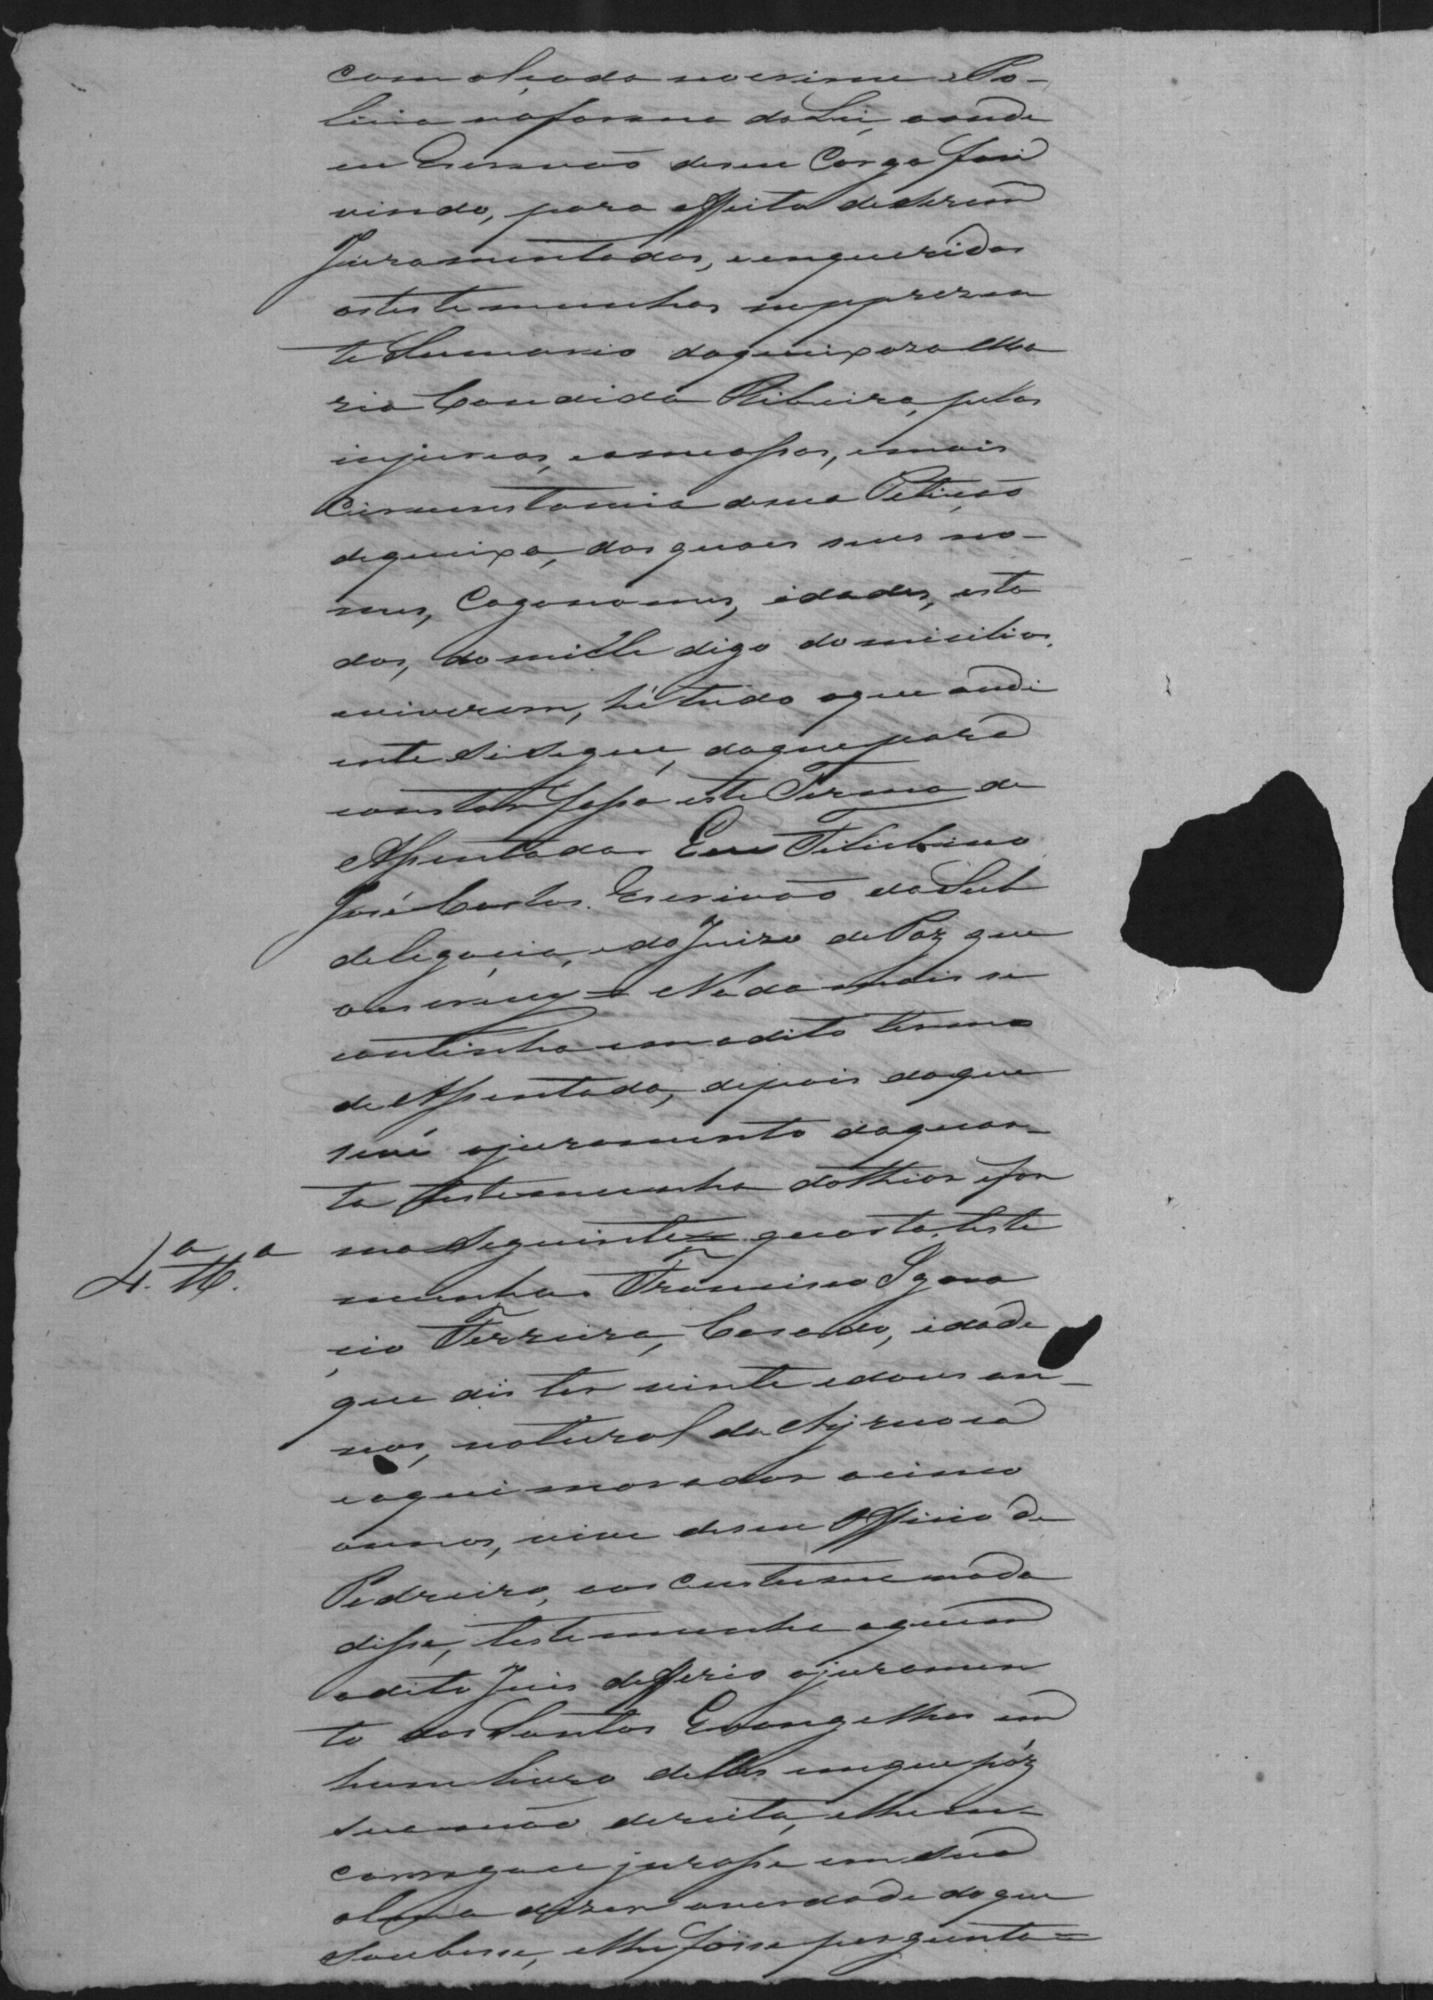 com alçada no crime e Po-
licia na forma da Lei, aonde
eu Escrivão de seu Cargo fui
vindo, para effeito de serem
Juramentados, e enqueridos
as testemunhas no pprezen
te Sumario da queixoza Ma
ria Candida Ribeiro, pelas
injurias, e ameassas, e mais
Circunstancia de sua Petição
de queixa, das quaes seus no-
mes, Cogonomes, idades, esta
dos, domicile digo domicilios,
e viverem, hé tudo o que adi
ente Se Segue, do que para
constar fasso este Termo de
Assentada Eu Filisbino
José Carlos. Escrivão da Sub
delegacia, e do Juizo de Paz que
o escrevy = Nada mais se
continha em o dito termo
de Assentada, depois do que
se vé o juramento da quar-
ta testemunha do thior e for
ma Seguinte = quarta teste
4.ª Tt.ª
munha Francisco Igna
cio Ferreira, Casado, idade
que dis ter vinte e dous an-
nos, natural da Ayruoca
e aqui morador a cinco
annos, vive de seu Officio de
Pedreiro, aos custume nada
disse, testemunha a quem
o dito Juis defferio o juramen
to dos Santos Evangelhos em
hum livro delles em que pôz
sua mão dereita, e lhe en-
carregou jurasse em sua
alma dizer a verdade do que
Soubesse, e lhe fosse pergunta=